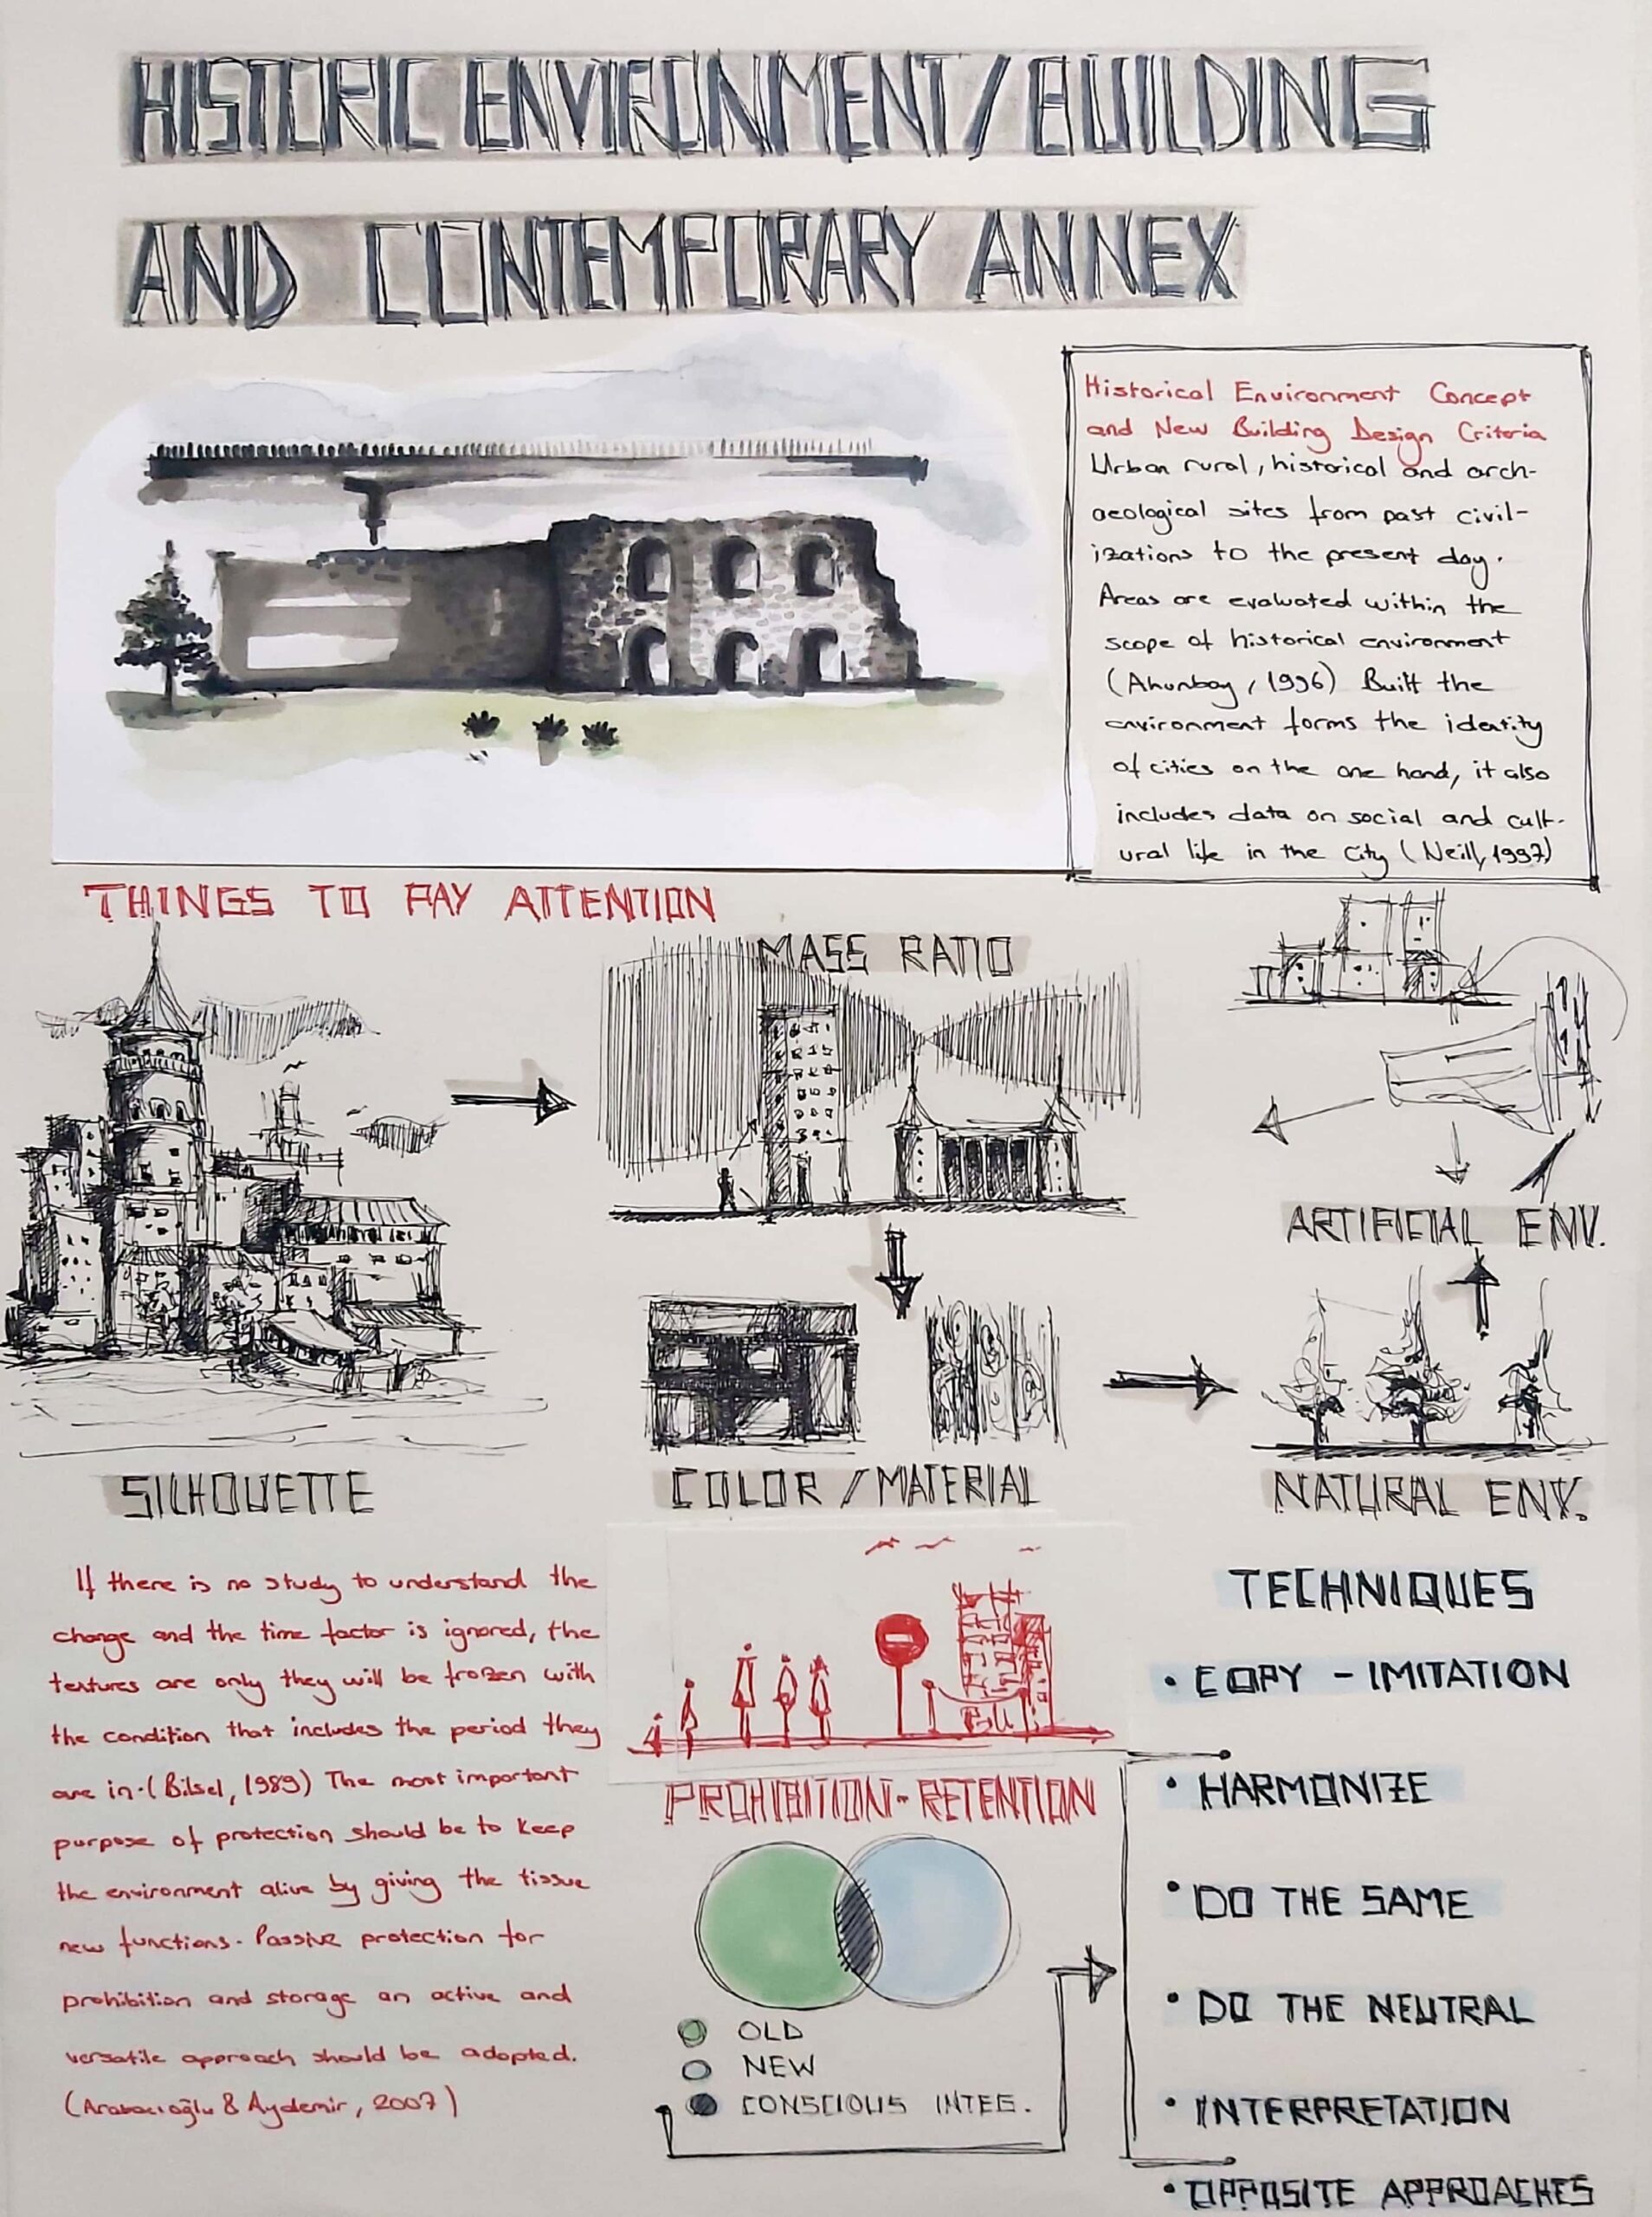 HISTORIC ENVIRONMENT/BUILDING
AND CONTEMPORARY ANNEX
Historical Environment Concept
and New Building Design Criteria
Urban rural, historical and arch-
aeological sites from past civil-
izations to the present day.
Areas are evaluated within the
scope of historical environment
(Ahunbay, 1996) Built the
environment forms the identity
of cities on the one hand, it also
includes data on social and cult-
ural life in the city (Neill, 1997)
THINGS TO PAY ATTENTION
MASS RATIO
ARTIFICIAL ENV.
SILHOUETTE
COLOR / MATERIAL
NATURAL ENV.
If there is no study to understand the
change and the time factor is ignored, the
textures are only they will be frozen with
the condition that includes the period they
are in. (Bilsel, 1989) The most important
purpose of protection should be to keep
the environment alive by giving the tissue
new functions. Passive protection for
prohibition and storage an active and
versatile approach should be adopted.
(Arabacıoğlu & Aydemir, 2007)
PROHIBITION-RETENTION
OLD
NEW
CONSCIOUS INTEG.
TECHNIQUES
• COPY - IMITATION
• HARMONIZE
• DO THE SAME
• DO THE NEUTRAL
• INTERPRETATION
• OPPOSITE APPROACHES